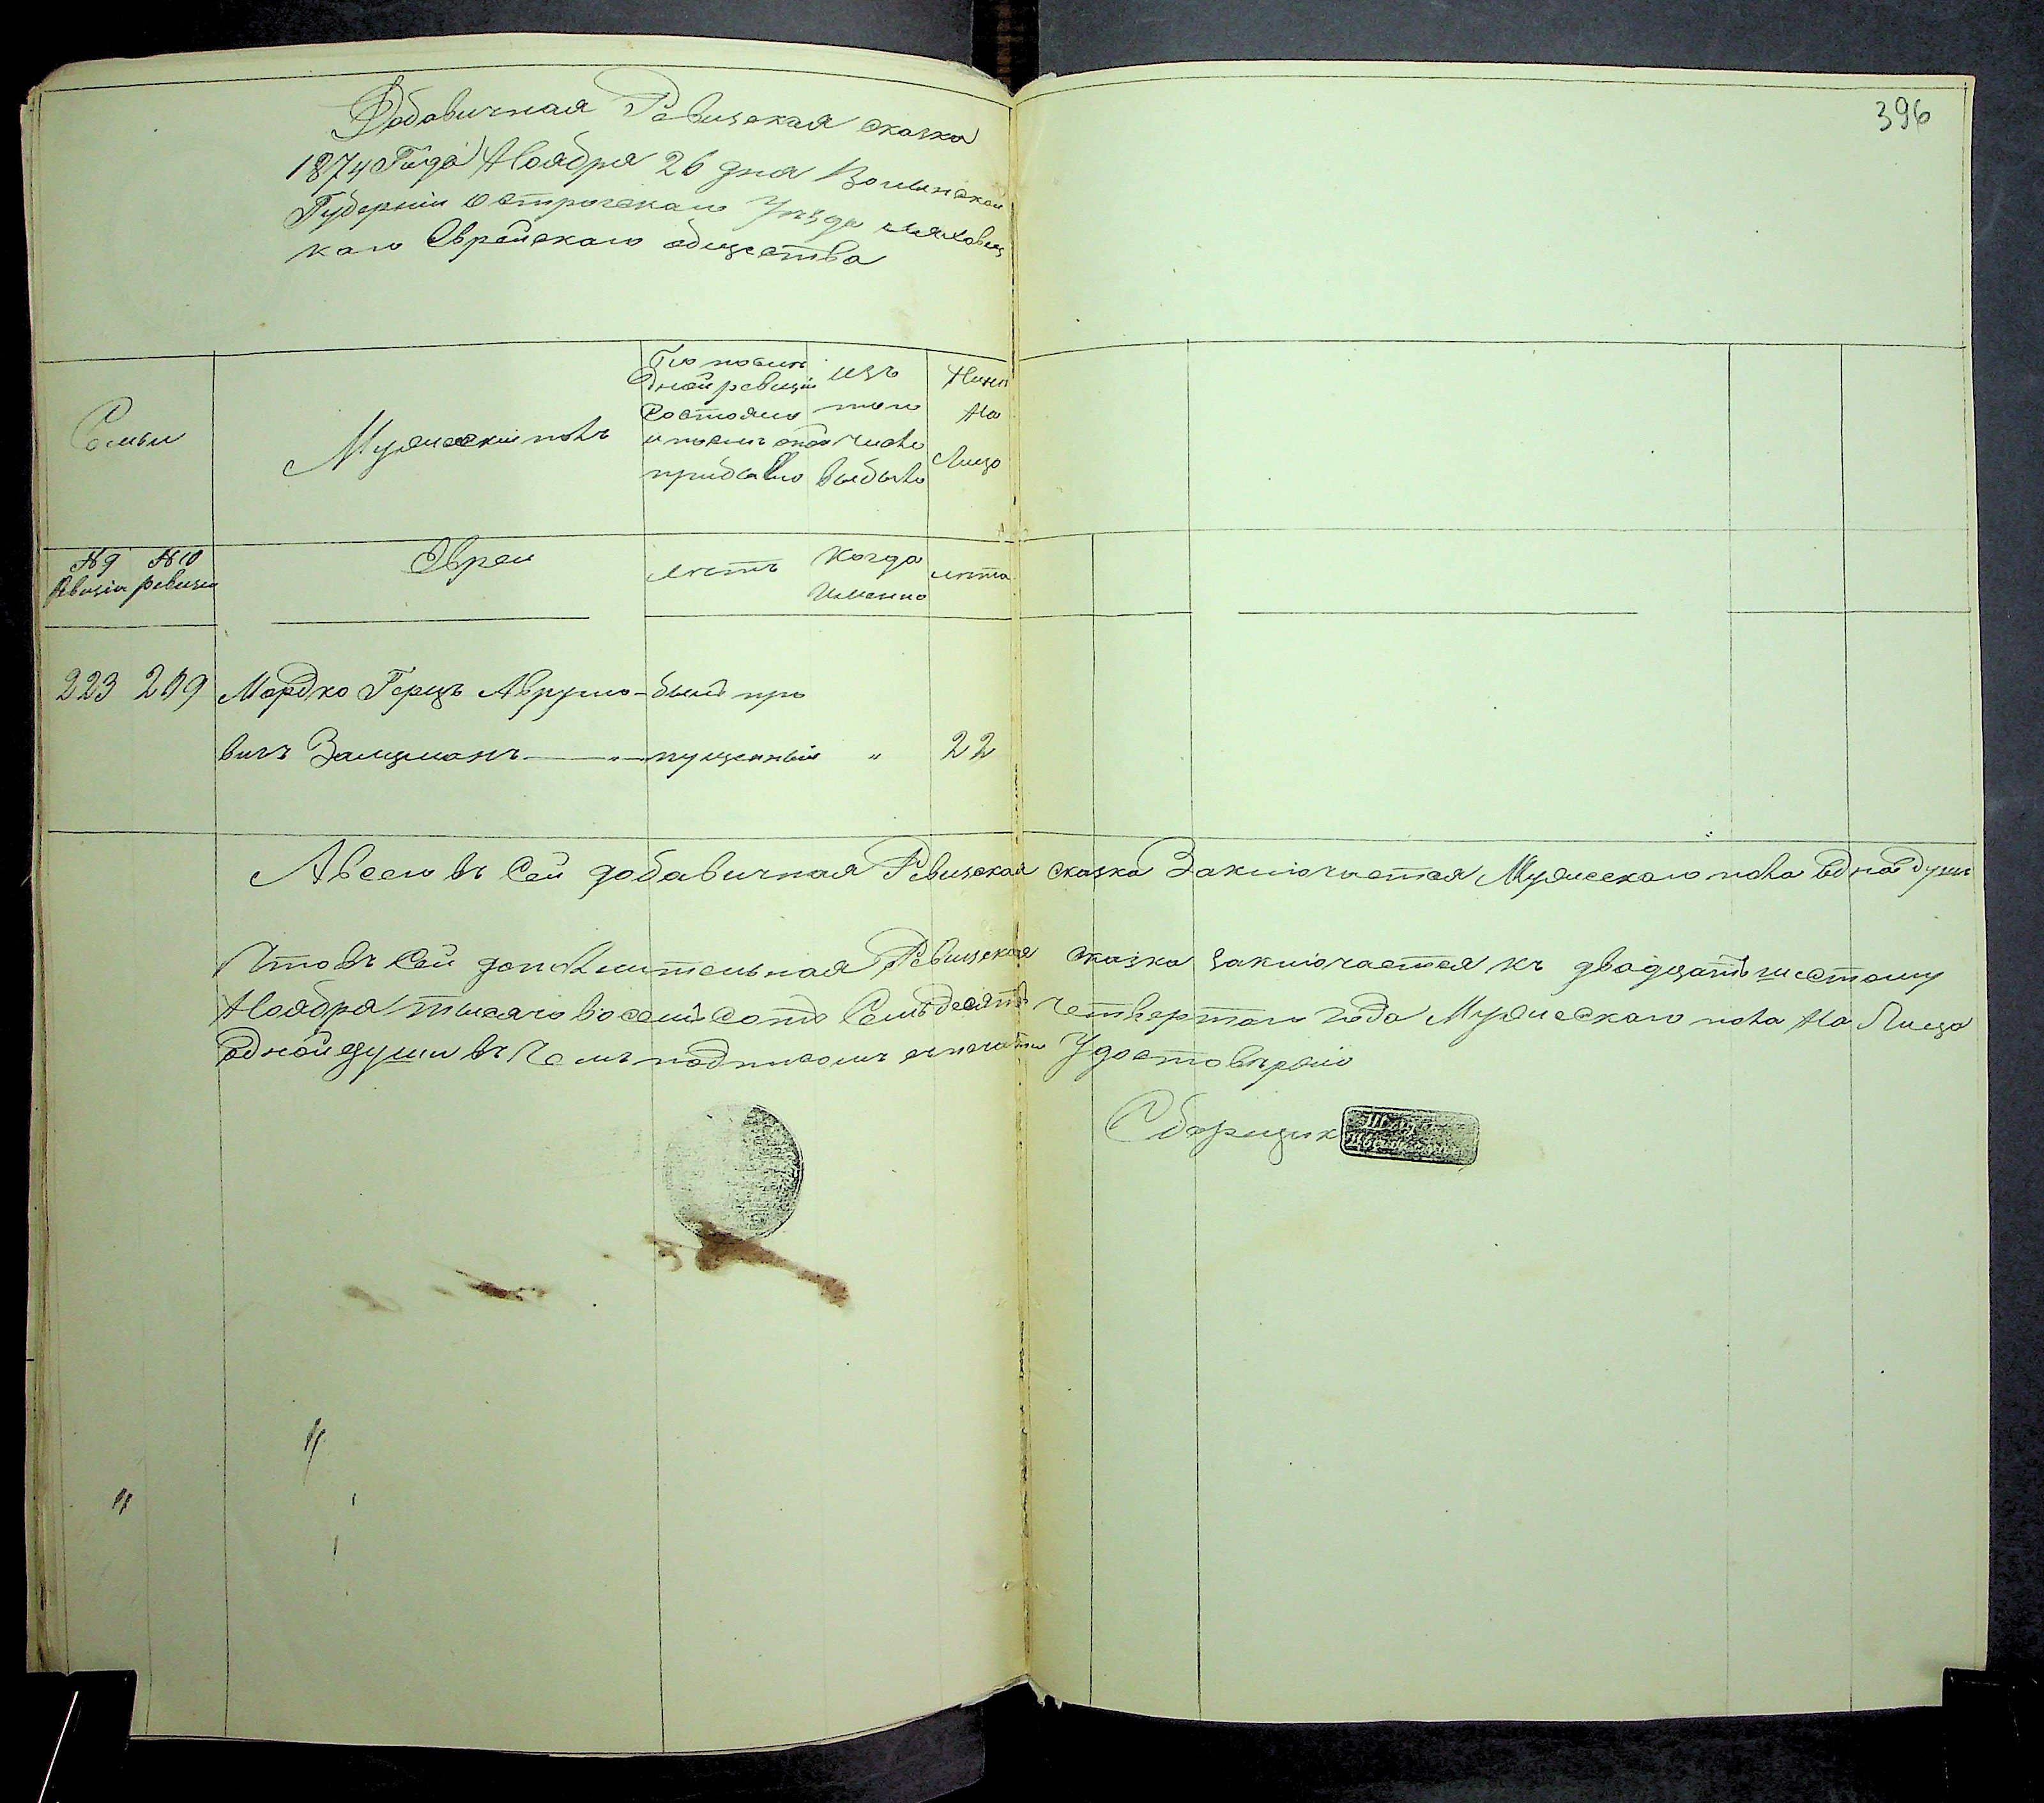 396
Добавичная Ревизская сказка
1874 Года Ноября 26 дня Волынской
Губерніи Острогскаго Уѣзда Ляховец
каго Еврейскаго общества
Семьи
Мужескій полъ
По послѣ
дней ревизіи
состояло
и послѣ того
прибыло
изъ
того
числа
выбыло
Нынѣ
На
Лицо
№ 9 № 10
Ревизіи ревизіи
Евреи
лѣтъ
Когда
Именно
лѣта
223 209 Мордко Герцъ Аврумо- былъ про
вичъ Зальцманъ пущенный " 22
А всего въ Сей добавичная Ревизская сказка Заключается Мужескаго пола одна душъ
Что въ Сей дополнительная Ревизская сказка заключается къ двадцать шестому
Ноября тысяча восемьсотъ Семьдесятъ четвертаго года Мужескаго пола На Лицо
одной души въ Чемъ подписомъ и печатью Удостовѣряю
Сборщик